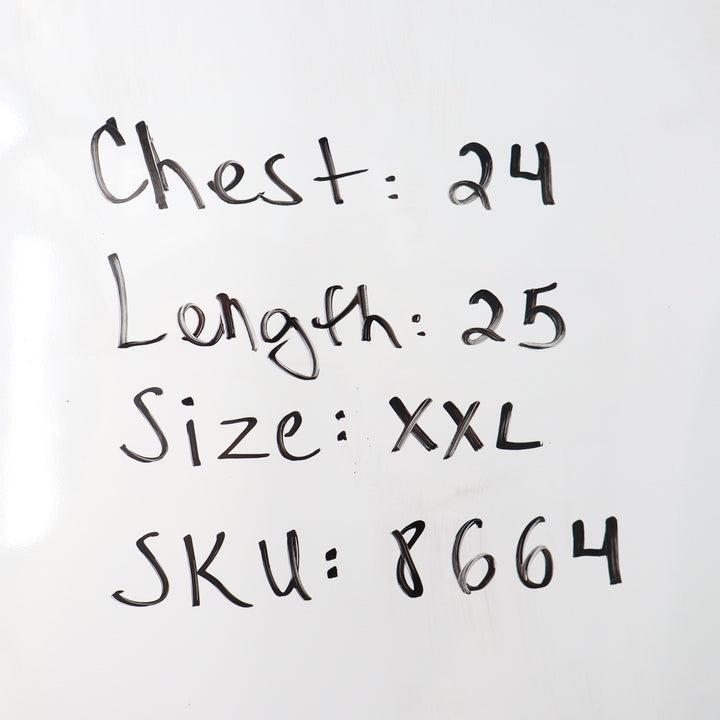 Chest: 24
Length: 25
Size: XXL
SKU: 8664